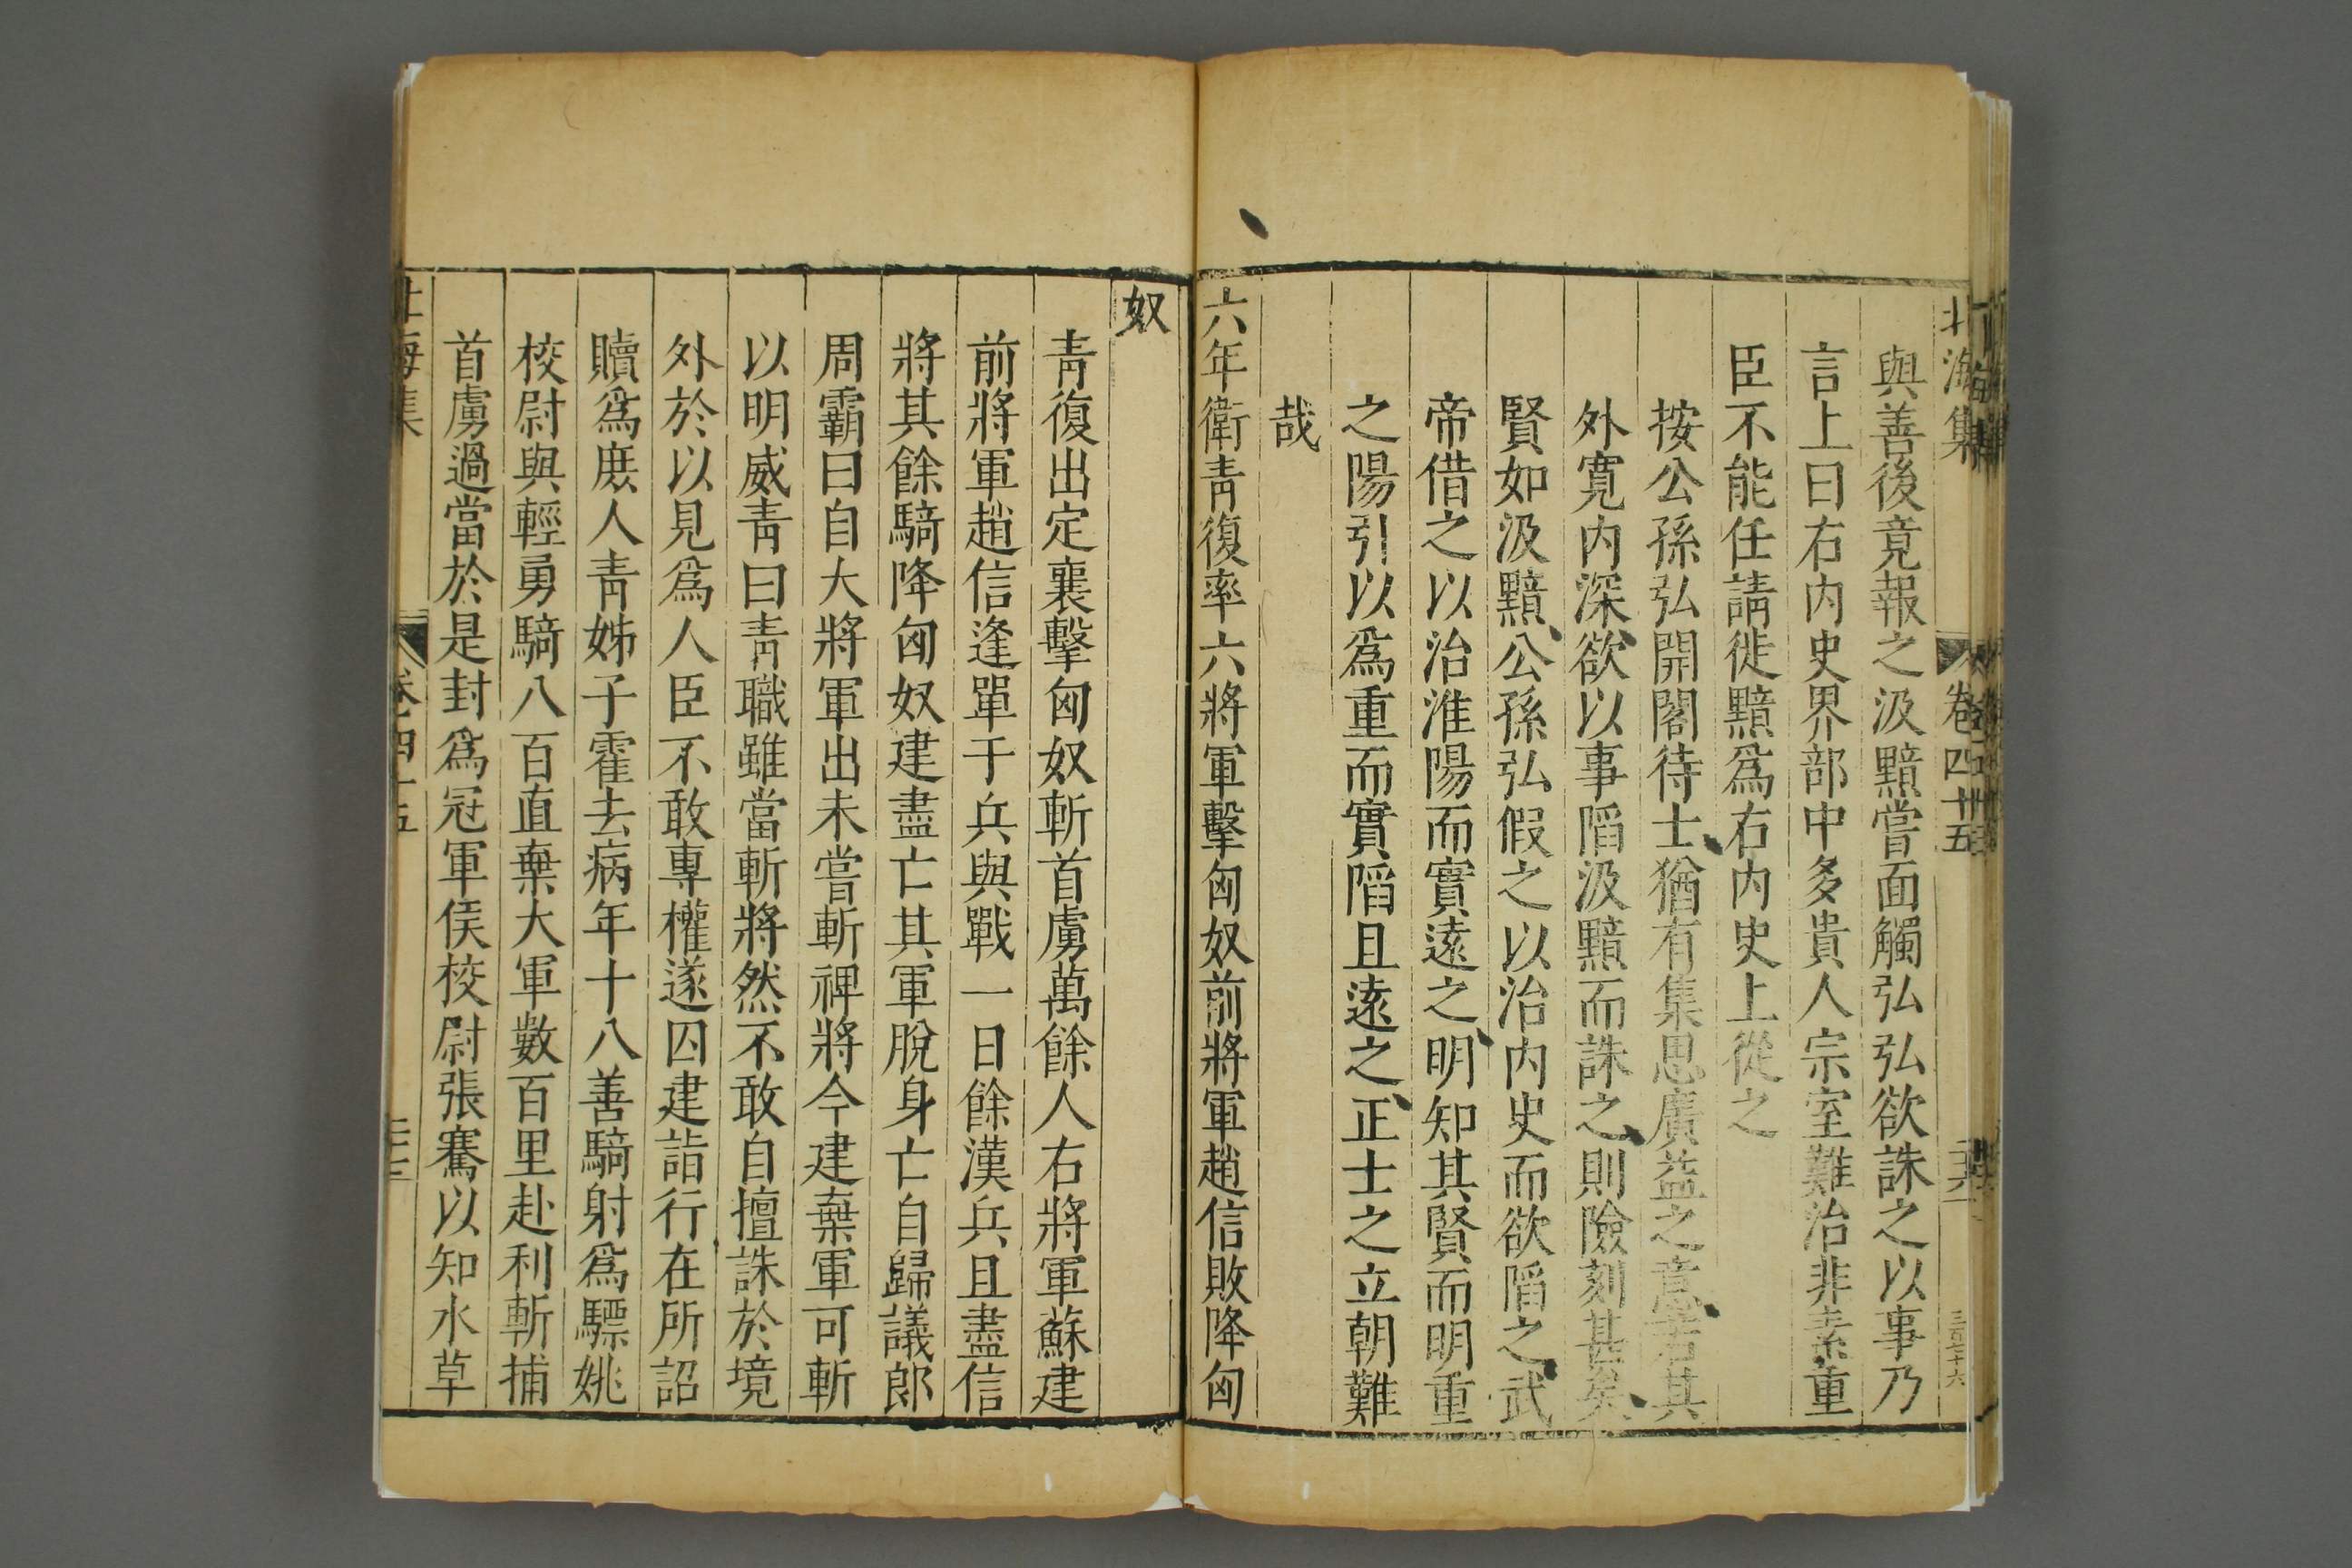 北海集 卷四十五 二十六 三百七十六
與善後竟報之汲黯嘗面觸弘弘欲誅之以事乃
言上曰右內史界部中多貴人宗室難治非素重
臣不能任請徙黯爲右內史上從之
按公孫弘開閣待士猶有集思廣益之意若其
外寬內深欲以事陷汲黯而誅之則險刻甚矣
賢如汲黯公孫弘假之以治內史而欲陷之武
帝借之以治淮陽而實遠之明知其賢而明重
之陽引以爲重而實陷且遠之正士之立朝難
哉
六年衛青復率六將軍擊匈奴前將軍趙信敗降匈
奴
青復出定襄擊匈奴斬首虜萬餘人右將軍蘇建
前將軍趙信逢單于兵與戰一日餘漢兵且盡信
將其餘騎降匈奴建盡亡其軍脫身亡自歸議郎
周霸曰自大將軍出未嘗斬裨將今建棄軍可斬
以明威青曰青職雖當斬將然不敢自擅誅於境
外於以見爲人臣不敢專權遂囚建詣行在所詔
贖爲庶人青姊子霍去病年十八善騎射爲驃姚
校尉與輕勇騎八百直棄大軍數百里赴利斬捕
首虜過當於是封爲冠軍侯校尉張騫以知水草
北海集 卷四十五